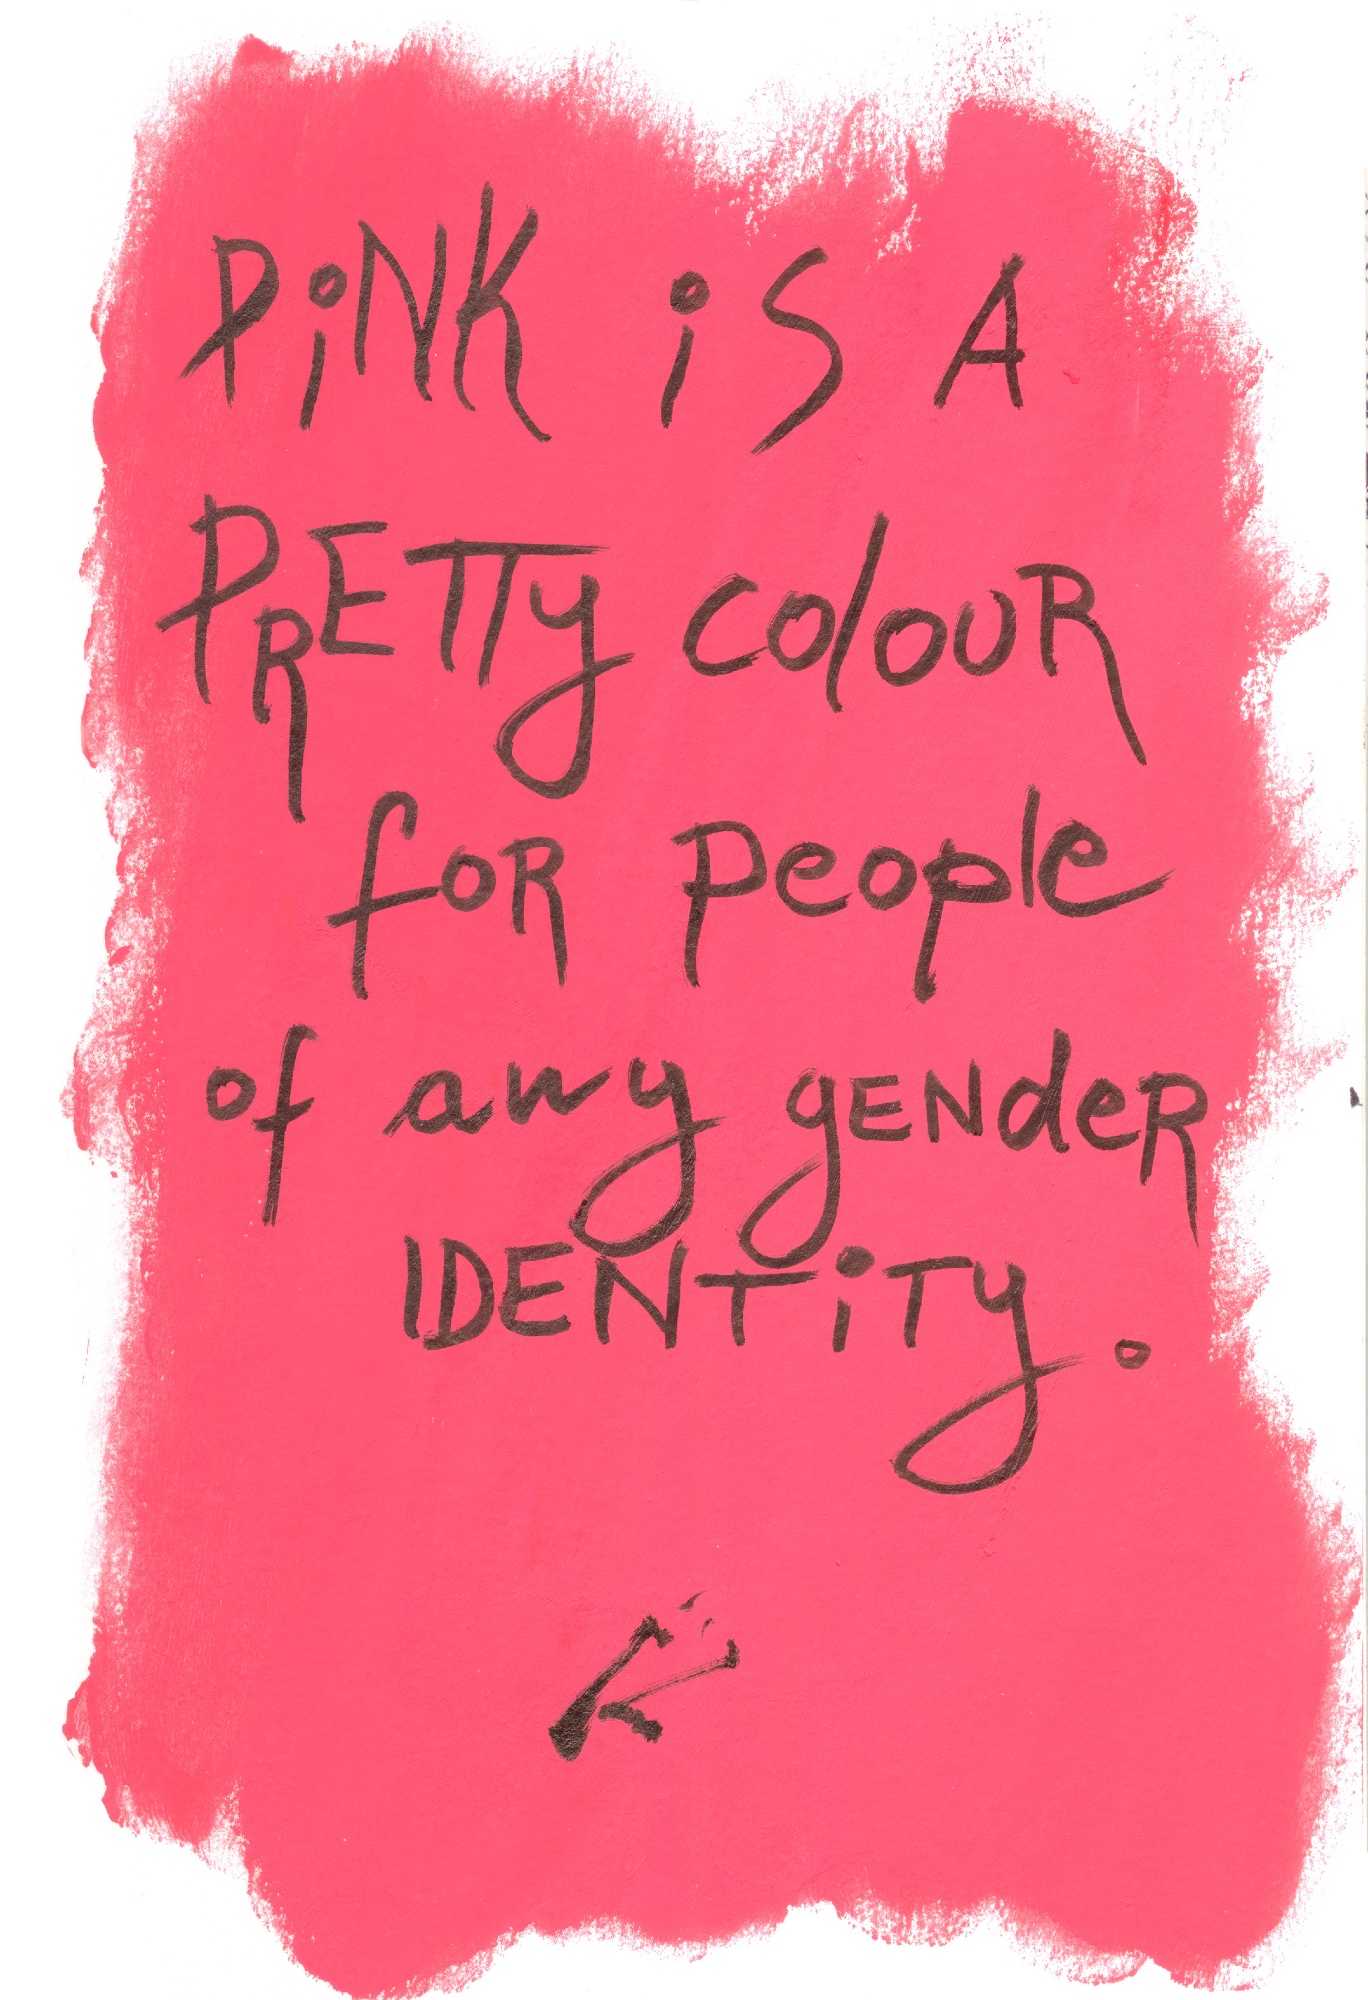 PiNK iS A
PRETTy colouR
foR people
of any gENdeR
IDENTiTy.